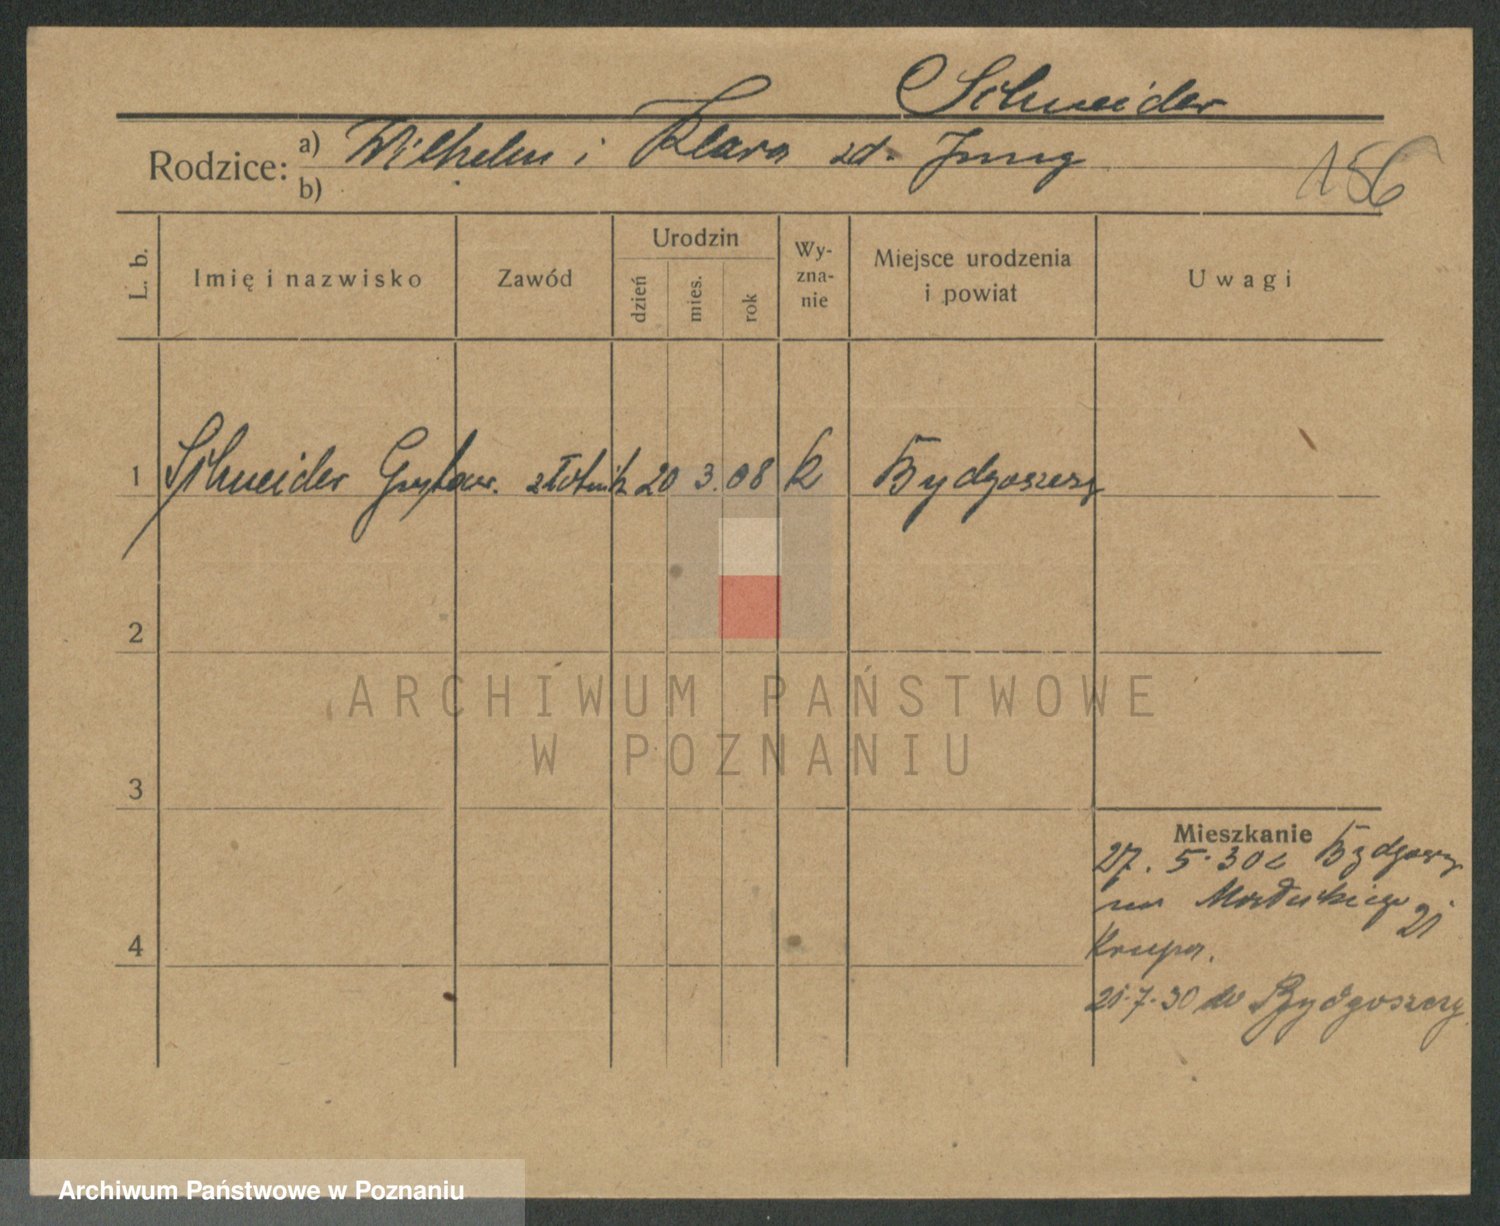 Schneider
Rodzice: a) Wilhelm i Klara zd. Jung
b)
156
L. b.
Imię i nazwisko
Zawód
Urodzin
dzień
mies.
rok
Wy-
zna-
nie
Miejsce urodzenia
i powiat
Uwagi
1 Schneider Gustaw. złotnik 20 3. 08 k Bydgoszcz
2
ARCHIWUM PAŃSTWOWE
W POZNANIU
3
Mieszkanie
27. 5. 30 z Bydgoszcz
21
4
Krupa.
21. 7. 30 do Bydgoszczy
Archiwum Państwowe w Poznaniu